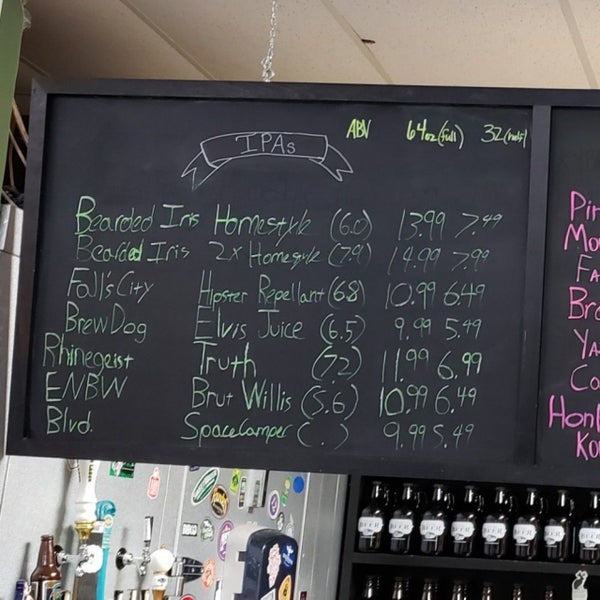 IPAs
ABV 64oz(full) 32(half)
Bearded Iris Homestyle (6.0) 13.99 7.49
Bearded Iris 2x Homestyle (7.9) 14.99 7.99
Fall's City Hipster Repellant (6.8) 10.99 6.49
BrewDog Elvis Juice (6.5) 9.99 5.49
Rhinegeist Truth (7.2) 11.99 6.99
ENBW Brut Willis (5.6) 10.99 6.49
Blvd. SpaceCamper ( . ) 9.99 5.49
Pin
Mo
Fa
Bro
Ya
Co
Hon
Ko
BEER